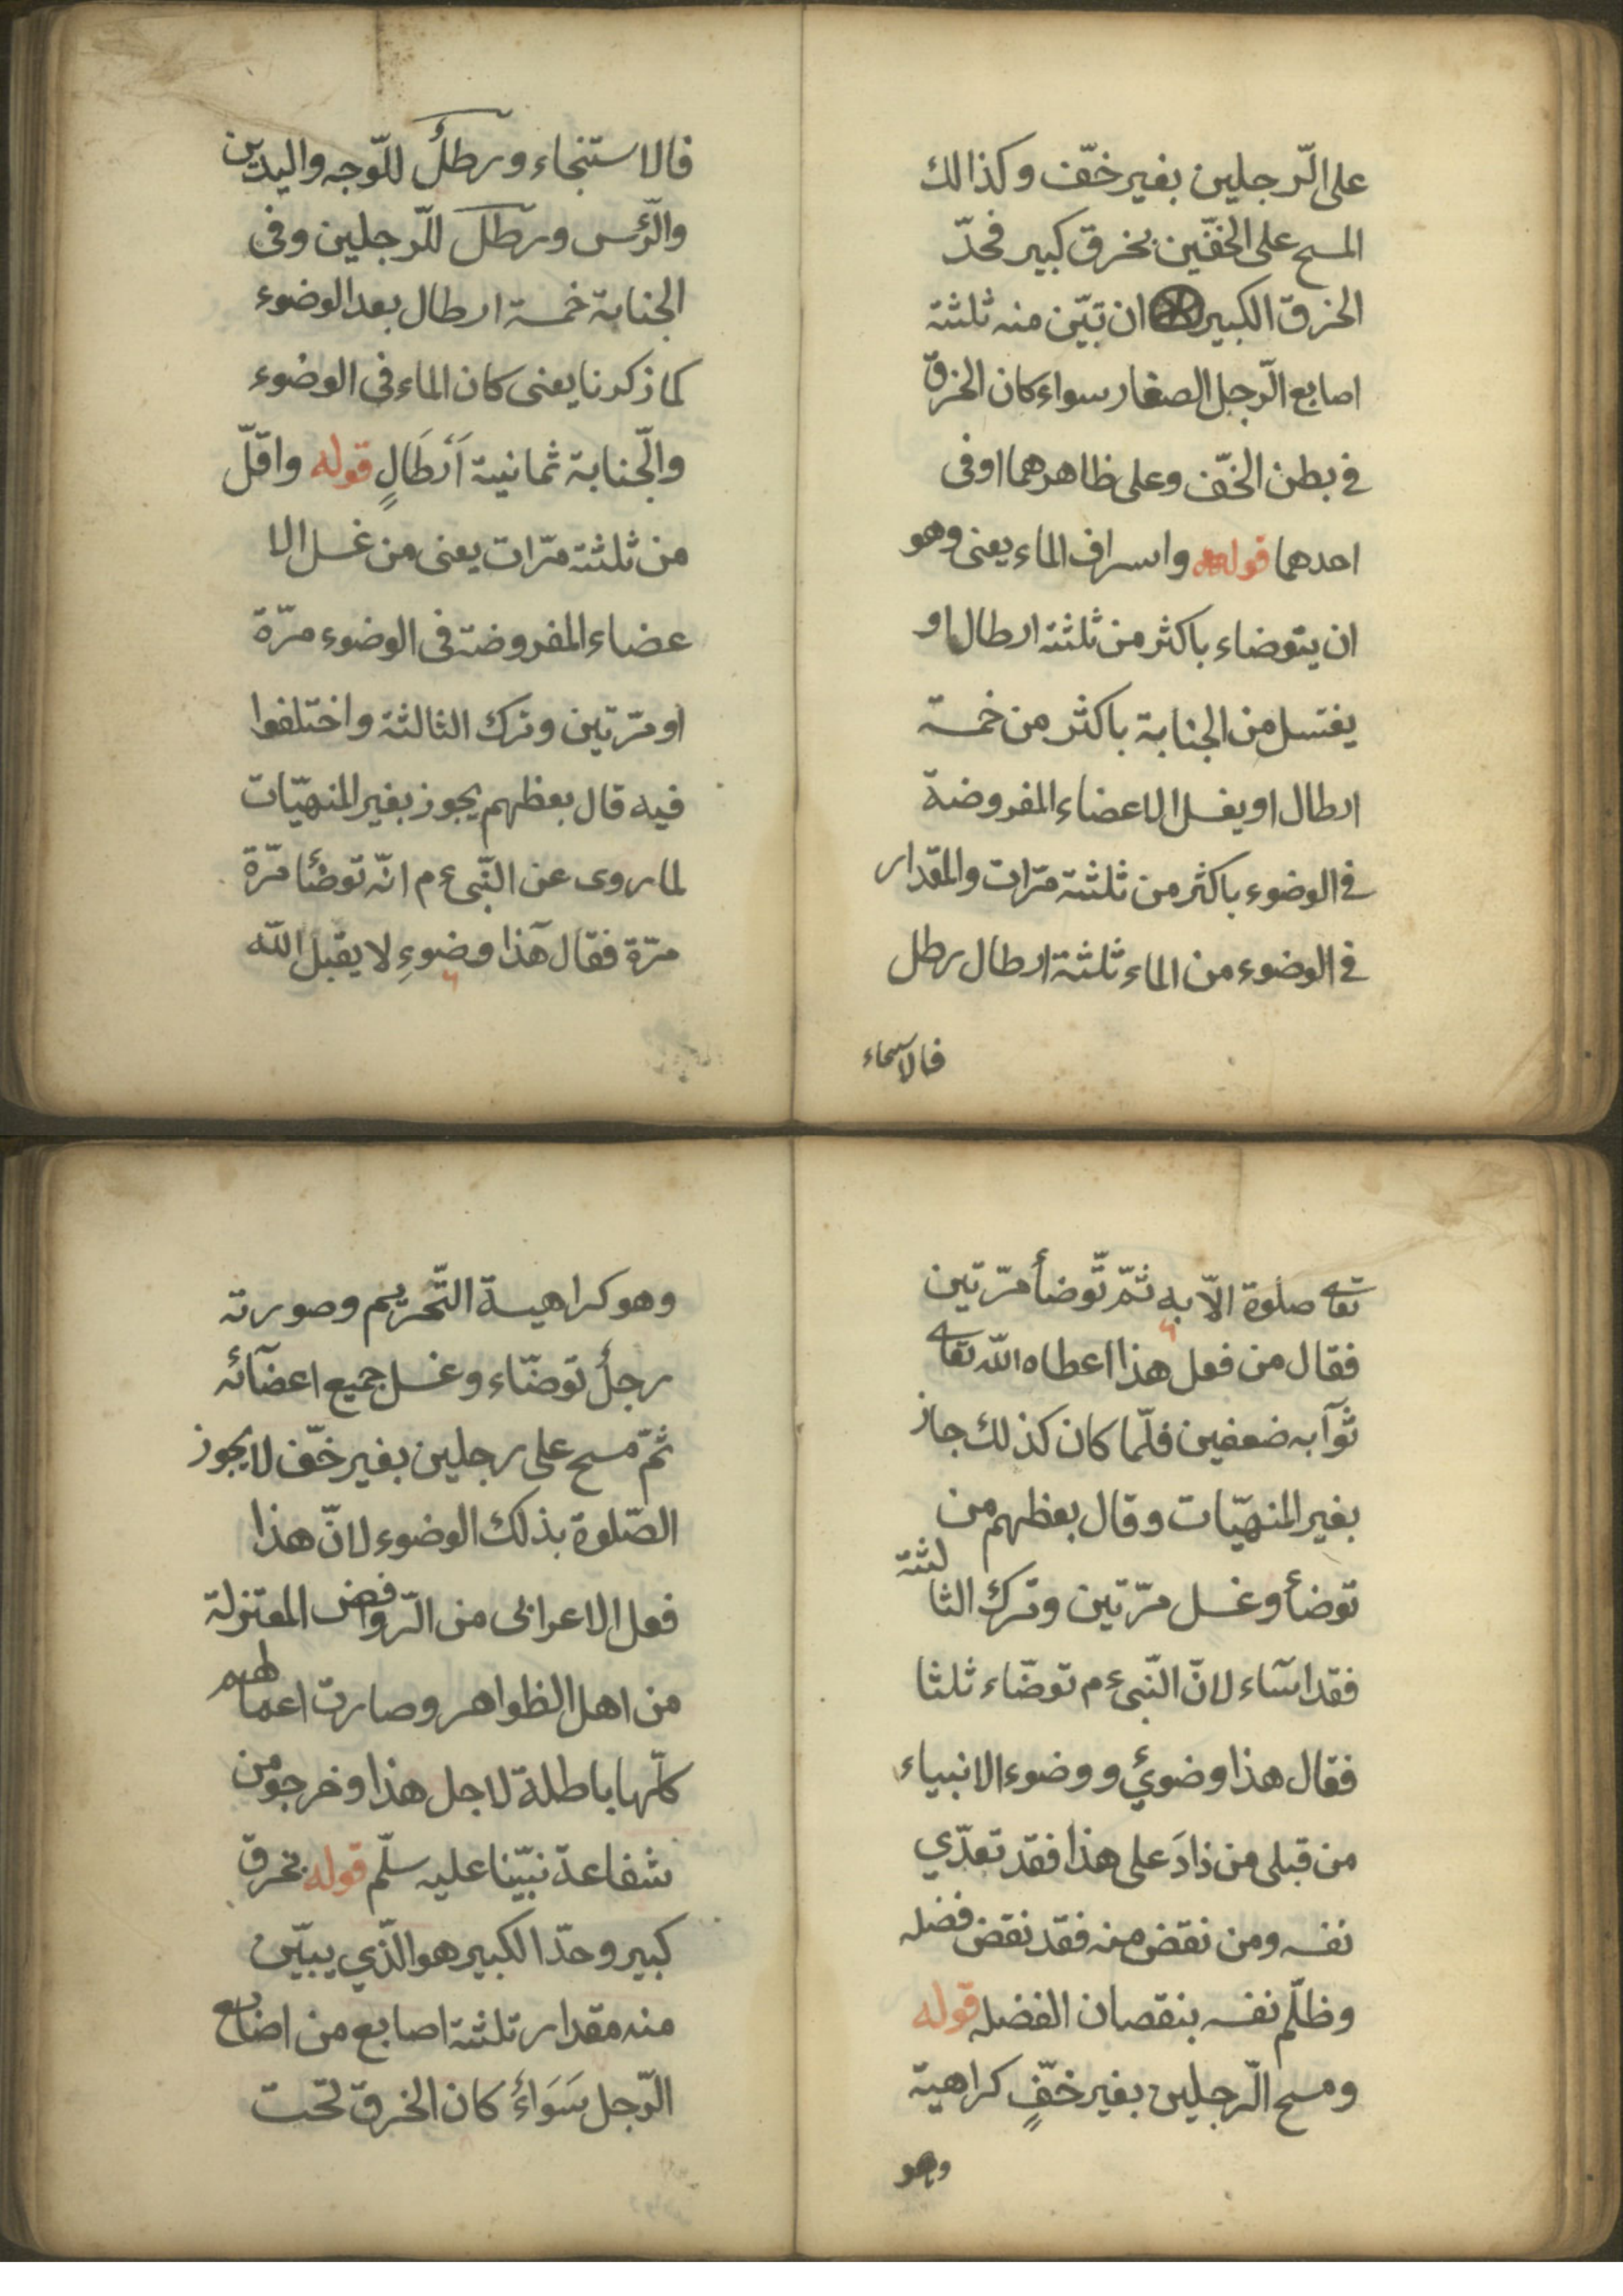 على الّرجلين بغير خفّ وكذالك
المسح على الخفّين بخرق كبير فحدّ
الخرق الكبير ان تبيّن منه ثلثة
اصابع الّرجل الصغار سواء كان الخرق
في بطن الخفّ وعلى ظاهرهما اوفى
احدهما قوله واسراف الماء يعنى وهو
ان يتوضاء باكثر من ثلثة ارطال او
يغتسل من الجنابة باكثر من خمسة
ارطال او يغسل الاعضاء المفروضة
في الوضوء باكثر من ثلثة مرّات والمقدار
في الوضوء من الماء ثلثة ارطال رطل
فالاستنجاء ورطلٌ للّوجه واليدين
والّرئس ورطل للّرجلين وفى
الجنابة خمسة ارطال بعد الوضوء
كما ذكرنا يعنى كان الماء فى الوضوء
والّجنابة ثمانية اَرْطَالٍ قوله واقلّ
من ثلثة مرّات يعنى من غسل الا
عضاء المفروضة فى الوضوء مرّة
او مرّتين وترك الثالثة واختلفوا
فيه قال بعظهم يجوز بغير المنهيّات
لما روى عن النّبى ء م انّه توضّأ مرّة
مرّة فقال هذا وضوءِ لا يقبل الله
تعالى صلوة الاّ به ثمّ تّوضأ مرّتين
فقال من فعل هذا اعطاه الله تعالى
ثوآبه ضعفين فلّما كان كذلك جاز
بغير المنهيّات وقال بعظهم من
توضأ وغسل مرّتين وترك الثالثة
فقد اسآء لانّ النّبى ء م توضّاء ثلثا
فقال هذا وضوئي ووضوء الانبياء
من قبلى من ذادَ على هذا فقد تعدّي
نفسه ومن نقض منه فقد نقض فضله
وظلّم نفسه بنقصان الفضله قوله
ومسح الّرجلين بغير خفّيٍ كراهية
وهو
وهو كراهيسة التّحريم وصورته
رجلٌ توضّاء وغسل جميع اعضآئه
ثمّ مسح على رجلين بغير خفّ لا يجوز
الصّلوة بذلك الوضوء لانّ هذا
فعل الاعرابى من الّروافض المعتزلة
من اهل الظواهر وصارت اعمالهم
كلّها باطلة لاجل هذا وخرجو من
شفاعة نبيّنا عليه سلّم قوله بخرق
كبير وحدّ الكبير هو الّذي يبيّن
منه مقدار ثلثة اصابع من اصابع
الّرجل سَوَاءٌ كان الخرق تحت